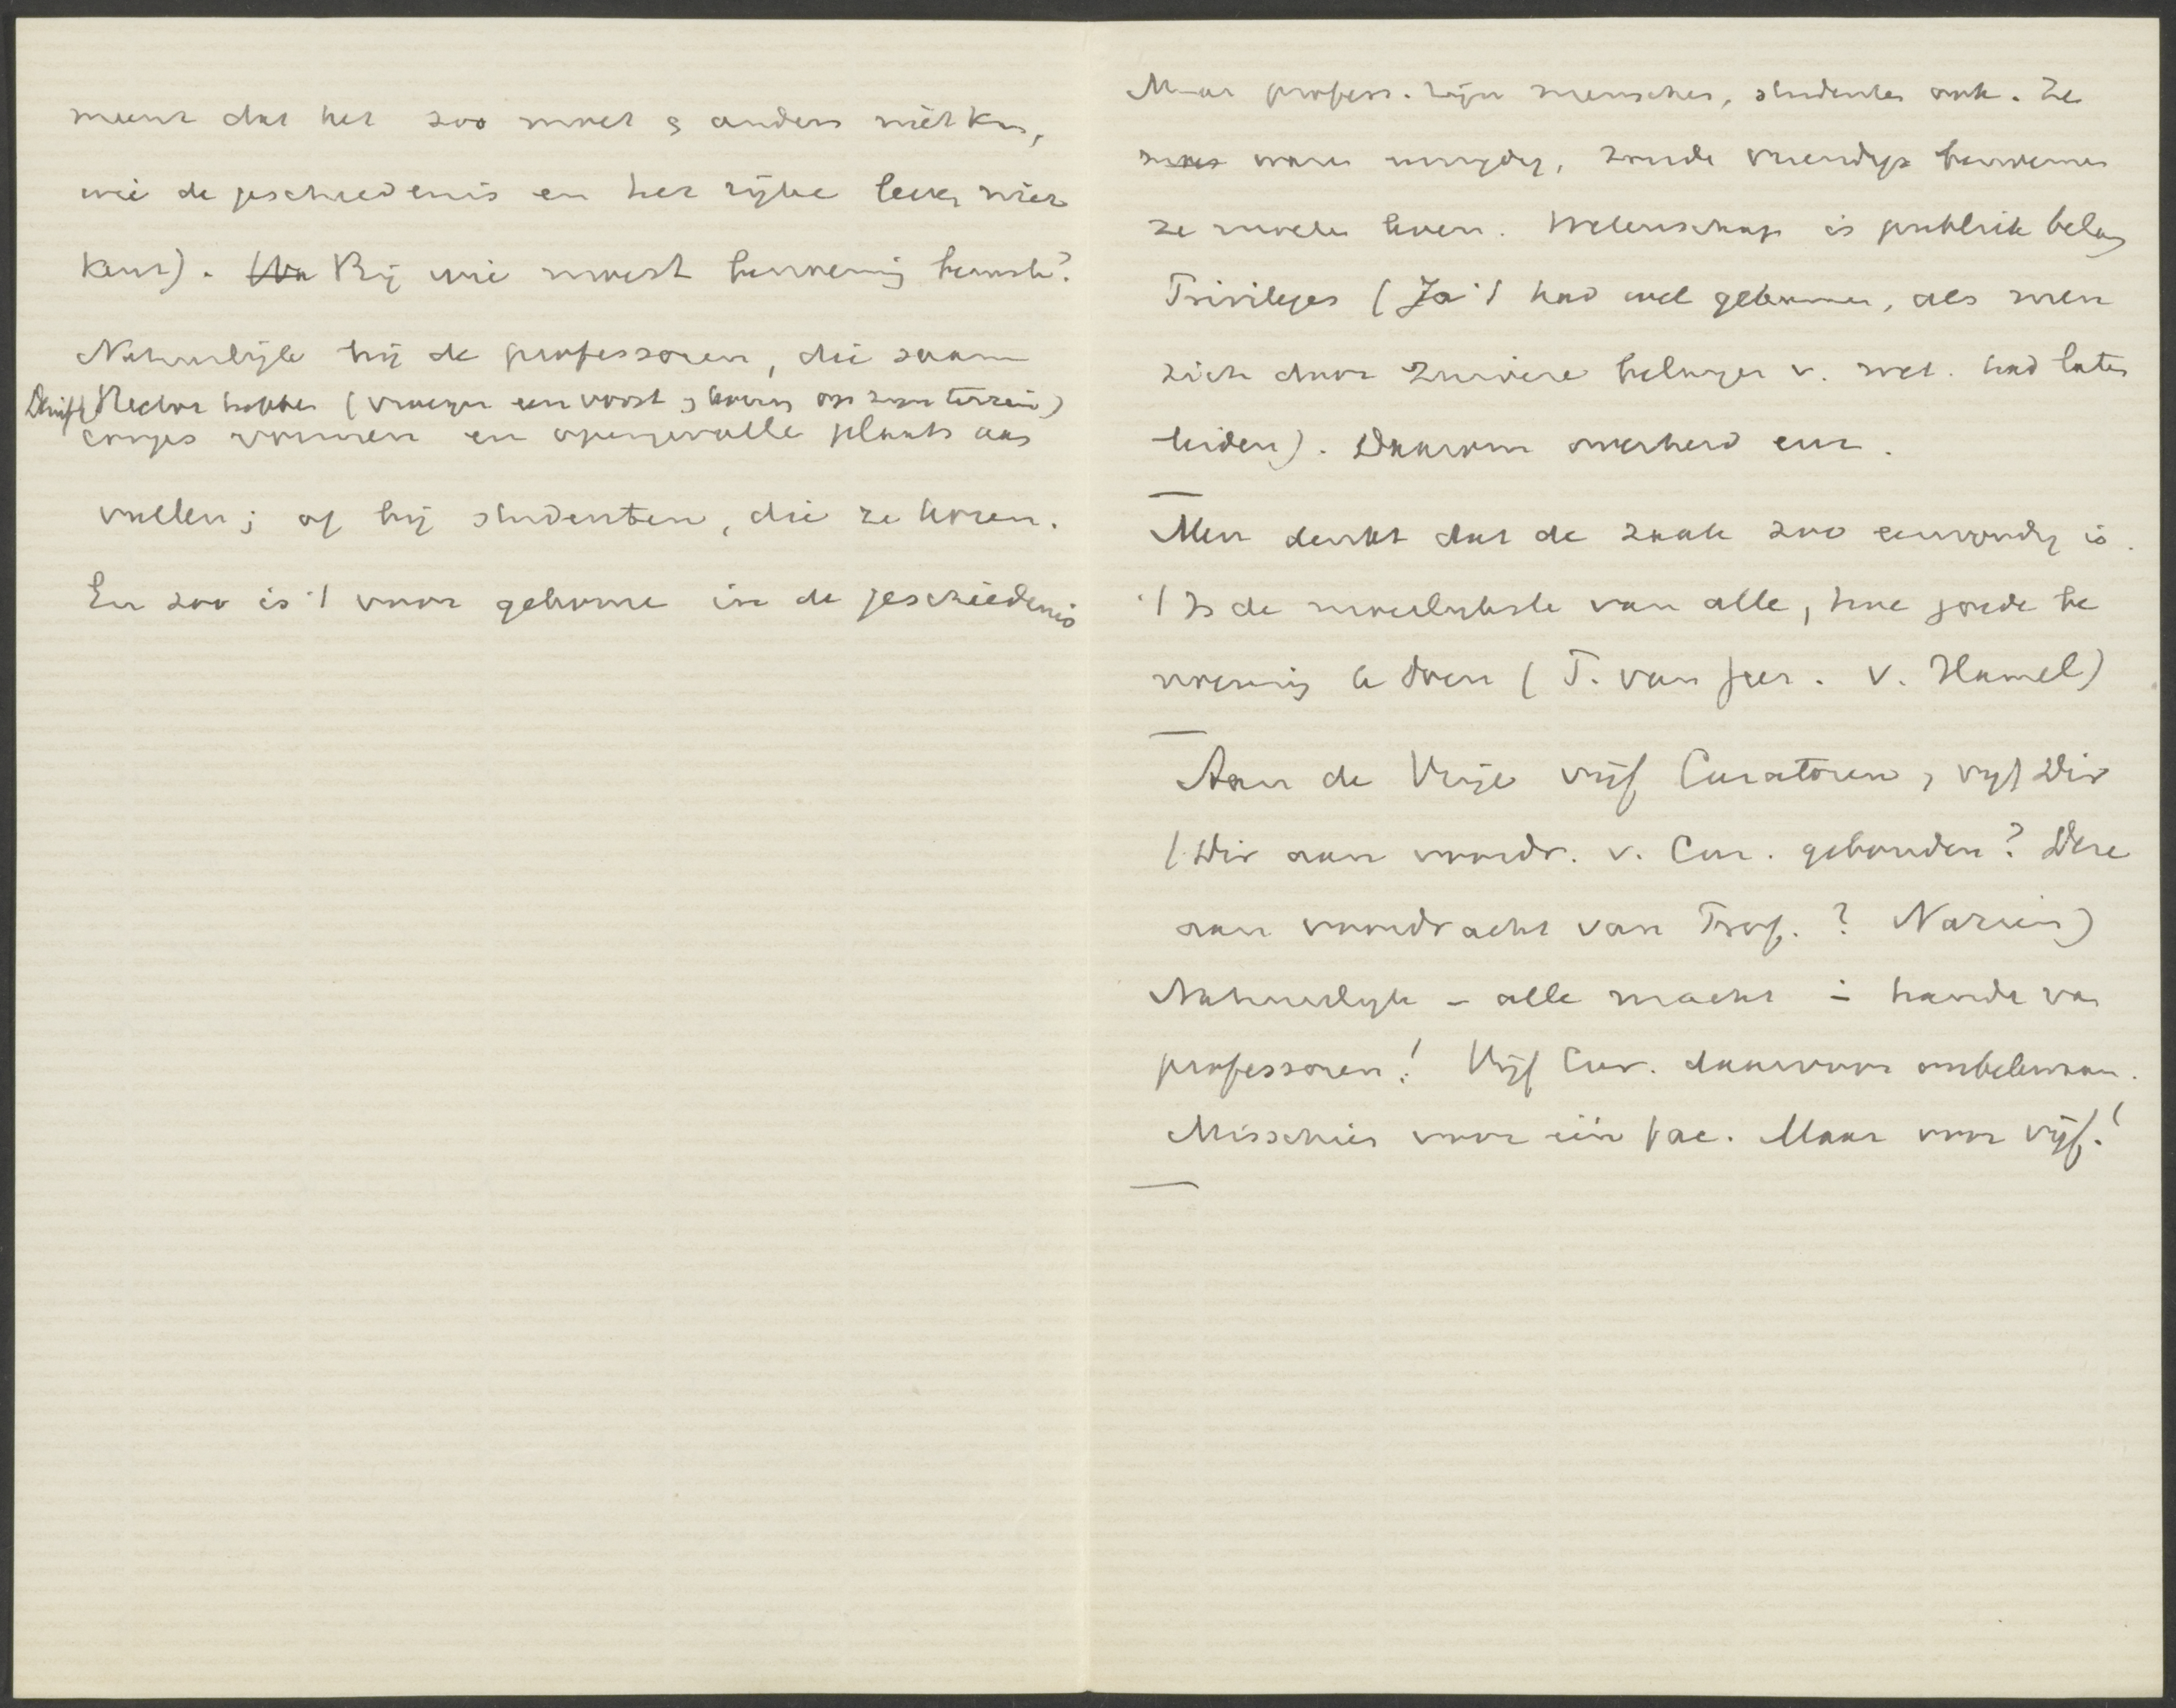 meent dat het zoo moet & anders niet kan,
wie de geschiedenis en het rijke leven niet
kent). Bij wie moest benoeming berusten?
Natuurlijk bij de professoren, die saam
Rector hebben (vroeger een vorst & koning op zijn terrein)
corps vormen en opengevallen plaats aan
vullen; of bij studenten, die ze hooren.
En zoo is 't voor gekomen in de geschiedenis
Maar profess. zijn menschen, studenten ook. Ze
waren onnoodig, zonde vriendjes benoemen
ze moeten leven. Wetenschap is publiek belang
Privileges (Ja 't had wel gekunnen, als men
zich door zuivere belangen v. wet. had laten
leiden). Daarom overheid eer.
Men denkt dat de zaak zoo eenvoudig is.
't Is de moeilijkste van alle, hoe goede be
noeming te doen (T. van Geer. v. Hamel)
Aan de Vrije vijf Curatoren, vijf Dir
(Dir aan voordr. v. Cur. gebonden? Deze
aan voordracht van Prof.? Nazien)
Natuurlijk - alle macht in handen van
professoren! Vijf Cur. daarvoor onbekwaam.
Misschien voor één fac. Maar voor vijf!